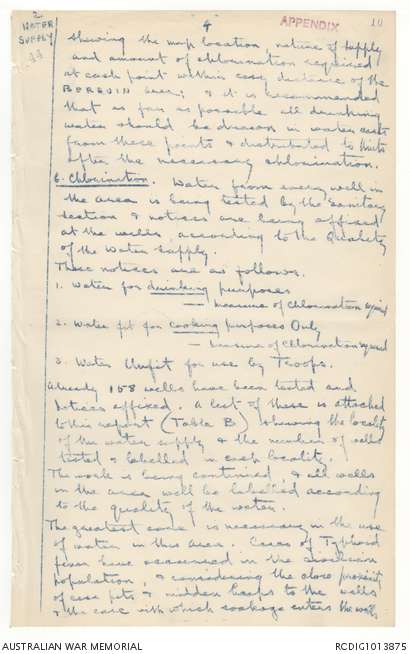 2
WATER
SUPPLY
4
APPENDIX
10
showing the map location, nature of supply
and amount of chlorination required
at each point within easy distance of the
BERGUIN area; & it is recommended
that as far as possible all drinking
water should be drawn in water carts
from these points & distributed to Units
after the necessary chlorination.
6. Chlorination. Water from every well in
the area is being tested by the sanitary
section & notices are being affixed
at the wells, according to the quality
of the water supply.
These notices are as follows.
1. Water for drinking purposes
— measure of Chlorination required
2. Water fit for Cooking purposes Only
— measure of Chlorination required
3. Water Unfit for use by Troops.
Already 158 wells have been tested and
notices affixed. A list of these is attached
to this report (Table B) showing the locality
of the water supply & the number of wells
tested & labelled in each locality.
The work is being continued, & all wells
in the area will be labelled according
to the quality of the water.
The greatest care is necessary in the use
of water in this area. Cases of Typhoid
fever have occurred in the civilian
population, & considering the close proximity
of cess pits & midden heaps to the wells
& the ease with which soakage enters the wells
AUSTRALIAN WAR MEMORIAL
RCDIG1013875